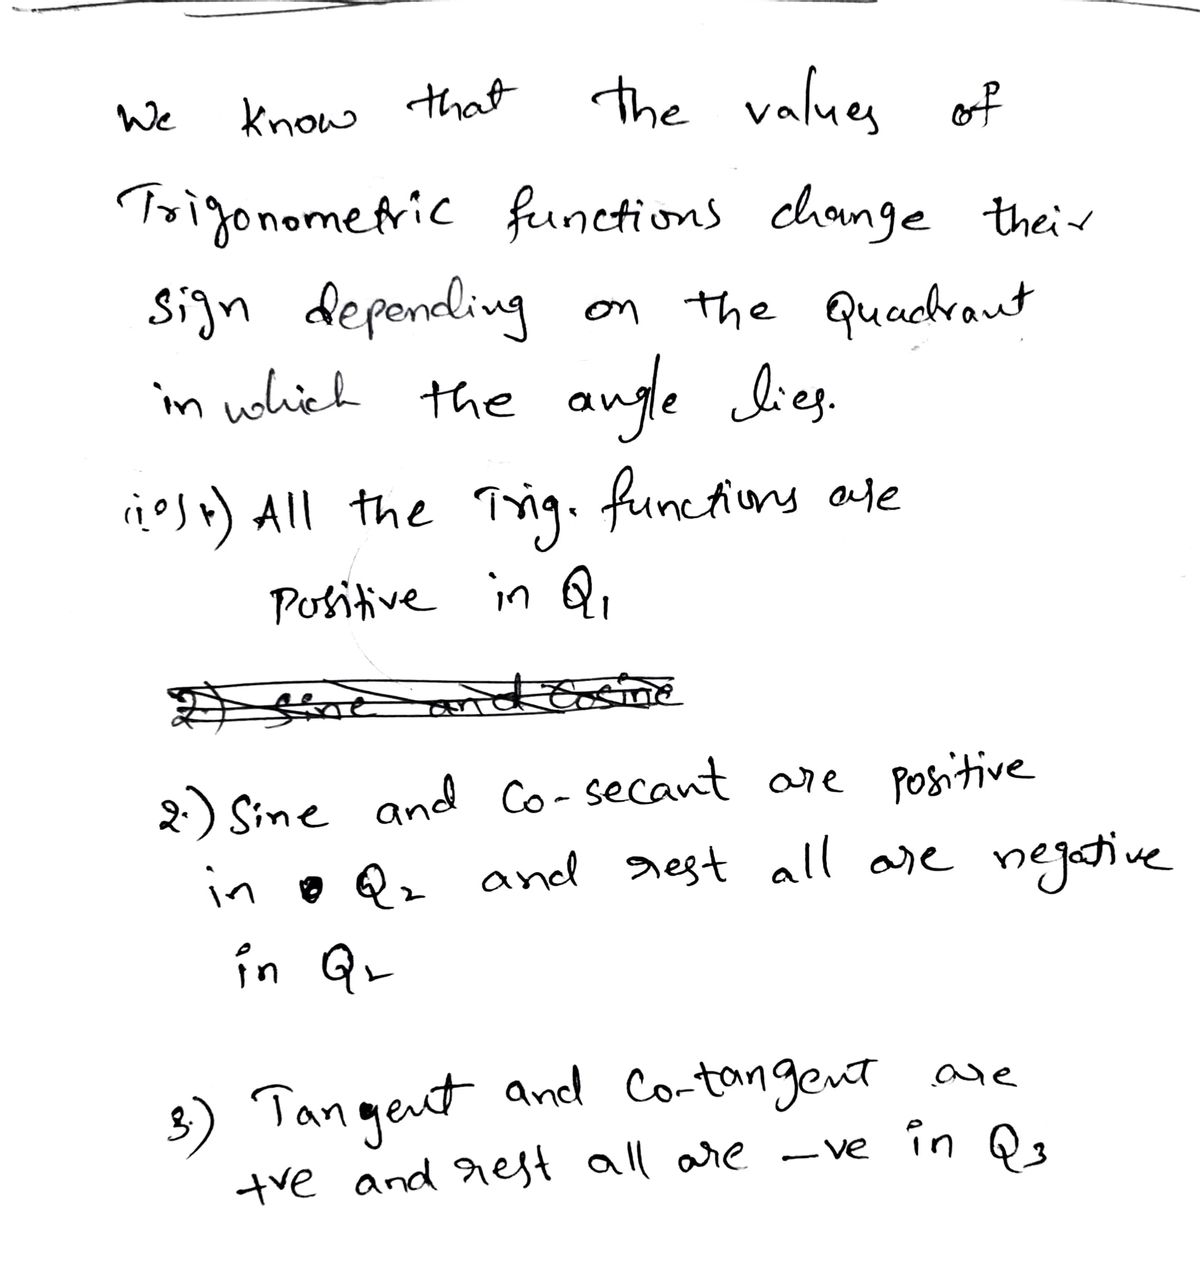 We know that the values of
Trigonometric functions change their
sign depending on the Quadrant
in which the angle lies.
All the Trig. functions are
Positive in Q1
2) Sine and Cosine
2.) Sine and Co-secant are positive
in Q2 and rest all are negative
in Q2
3.) Tangent and Co-tangent are
+ve and rest all are -ve in Q3